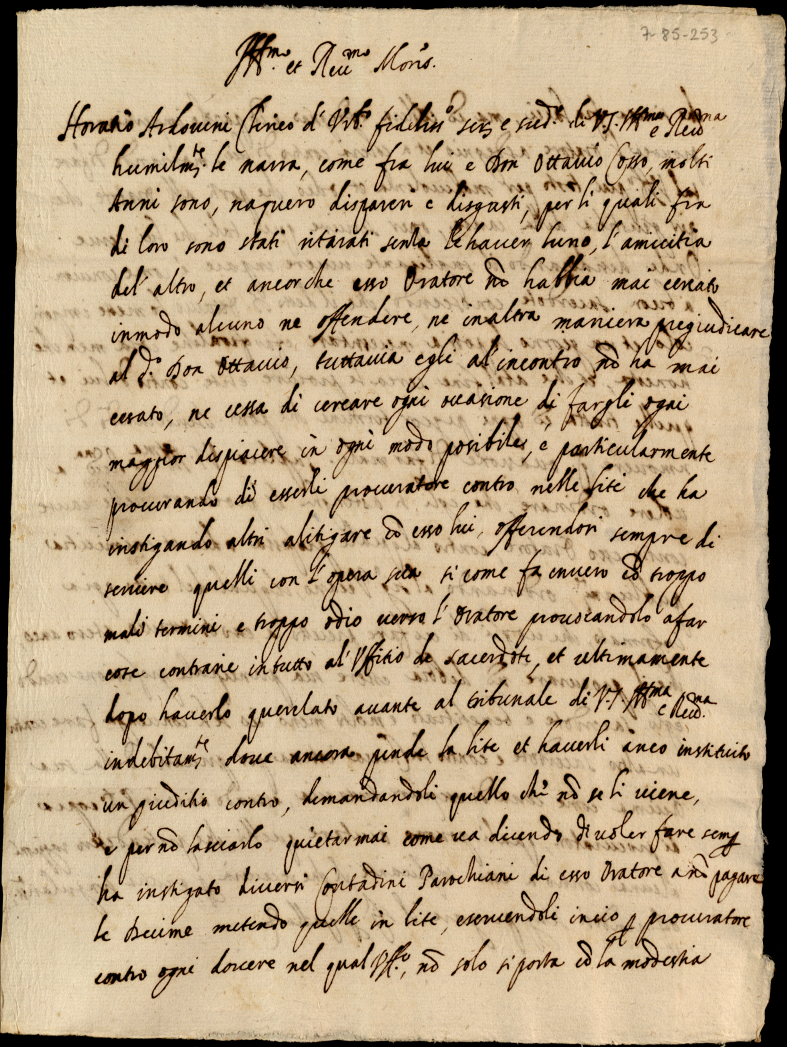 7-85-253
Ill.mo et Reu.mo Mons.
Horatio Ardouini Chrico d' Urb.o fideliss.o ser.e e sud.o di V.S. Ill.ma e Reu.ma
humilm.te le narra, come fra lui e Don Ottauio Cosso, molti
Anni sono, naquero dispareri e disgusti, per li quali fra
di loro sono stati ritirati senza l'hauer l'uno, l'amicitia
del' altro, et ancorche esso Oratore nō habbia mai cercato
inmodo alcuno ne offendere, ne in altra maniera pregiudicare
al d.o Don Ottauio, tuttauia egli al' incontro nō ha mai
cessato, ne cessa di cercare ogni occasione di fargli ogni
maggior dispiacere in ogni modo posibile, e particularmente
procurando di esserli procuratore contro nelle lite che ha
instigando altri alitigare cō esso lui, offerendosi sempre di
seruire quelli con l'opera sua si come fa enuero cō troppo
mali termini e troppo odio uerso l' Oratore prouocandolo afar
cose contrarie intutto al' Uffitio de sacerdote, et ultimamente
dopo hauerlo querelato auante al tribunale di V.S. Ill.ma e Reu.ma
indebitam.te doue ancora pende la lite et hauerli anco instituito
un giuditio contro, demandandoli quello che nō se li uiene,
e per nō lasciarlo quietar mai come ua dicendo di uoler fare semp
ha instigato diuersi Contadini Parochiani di esso Oratore a nō pagare
le Decime metendo quelle in lite, eseruendoli in cio p procuratore
contro ogni douere nel qual Uff.o, nō solo si porta cō la modestia